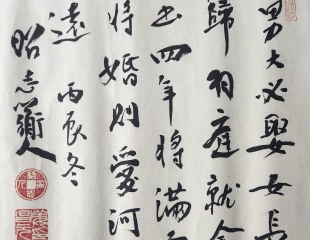 男大必娶女長
歸羽庭就
出四年將滿
將婚則愛河
遠 丙辰冬
昭志衡人